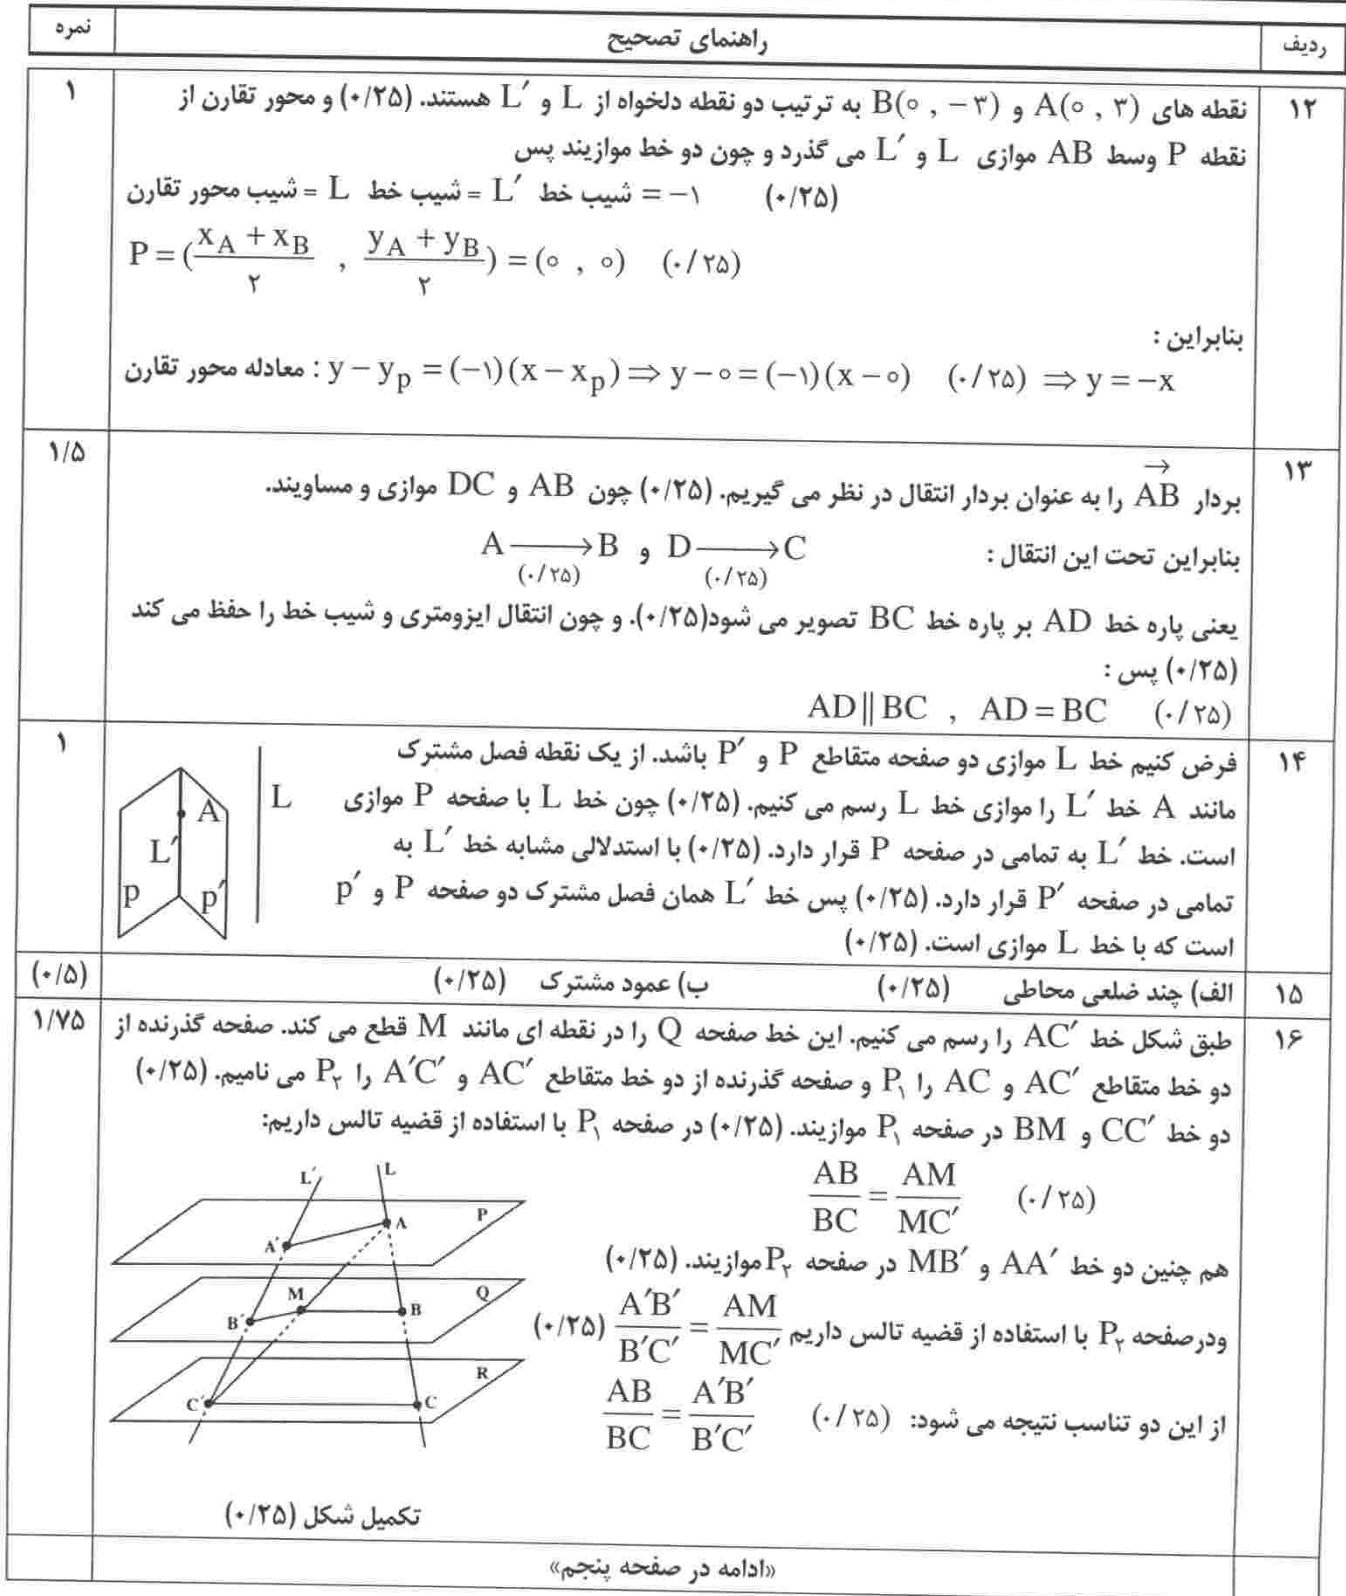 ردیف راهنمای تصحیح نمره
۱۲ نقطه های A(۰ , ۳) و B(۰ , −۳) به ترتیب دو نقطه دلخواه از L و L′ هستند. (۰/۲۵) و محور تقارن از ۱
نقطه P وسط AB موازی L و L′ می گذرد و چون دو خط موازیند پس
شیب محور تقارن = شیب خط L = شیب خط L′ = −۱ (۰/۲۵)
P = (x_A + x_B / ۲ , y_A + y_B / ۲) = (۰ , ۰) (۰/۲۵)
بنابراین :
معادله محور تقارن : y − y_p = (−۱)(x − x_p) ⇒ y − ۰ = (−۱)(x − ۰) (۰/۲۵) ⇒ y = −x
۱۳ بردار AB→ را به عنوان بردار انتقال در نظر می گیریم. (۰/۲۵) چون AB و DC موازی و مساویند. ۱/۵
بنابراین تحت این انتقال : A ⟶ B (۰/۲۵) و D ⟶ C (۰/۲۵)
یعنی پاره خط AD بر پاره خط BC تصویر می شود(۰/۲۵). و چون انتقال ایزومتری و شیب خط را حفظ می کند
(۰/۲۵) پس :
AD || BC , AD = BC (۰/۲۵)
۱۴ فرض کنیم خط L موازی دو صفحه متقاطع P و P′ باشد. از یک نقطه فصل مشترک ۱
مانند A خط L′ را موازی خط L رسم می کنیم. (۰/۲۵) چون خط L با صفحه P موازی
است. خط L′ به تمامی در صفحه P قرار دارد. (۰/۲۵) با استدلالی مشابه خط L′ به
تمامی در صفحه P′ قرار دارد. (۰/۲۵) پس خط L′ همان فصل مشترک دو صفحه P و p′
است که با خط L موازی است. (۰/۲۵)
A L
L′
p p′
۱۵ الف) چند ضلعی محاطی (۰/۲۵) ب) عمود مشترک (۰/۲۵) (۰/۵)
۱۶ طبق شکل خط AC′ را رسم می کنیم. این خط صفحه Q را در نقطه ای مانند M قطع می کند. صفحه گذرنده از ۱/۷۵
دو خط متقاطع AC′ و AC را P₁ و صفحه گذرنده از دو خط متقاطع AC′ و A′C′ را P₂ می نامیم. (۰/۲۵)
دو خط CC′ و BM در صفحه P₁ موازیند. (۰/۲۵) در صفحه P₁ با استفاده از قضیه تالس داریم:
AB/BC = AM/MC′ (۰/۲۵)
هم چنین دو خط AA′ و MB′ در صفحه P₂ موازیند. (۰/۲۵)
ودرصفحه P₂ با استفاده از قضیه تالس داریم A′B′/B′C′ = AM/MC′ (۰/۲۵)
از این دو تناسب نتیجه می شود: AB/BC = A′B′/B′C′ (۰/۲۵)
L′ L
A′ A P
B′ M B Q
C′ C R
تکمیل شکل (۰/۲۵)
«ادامه در صفحه پنجم»